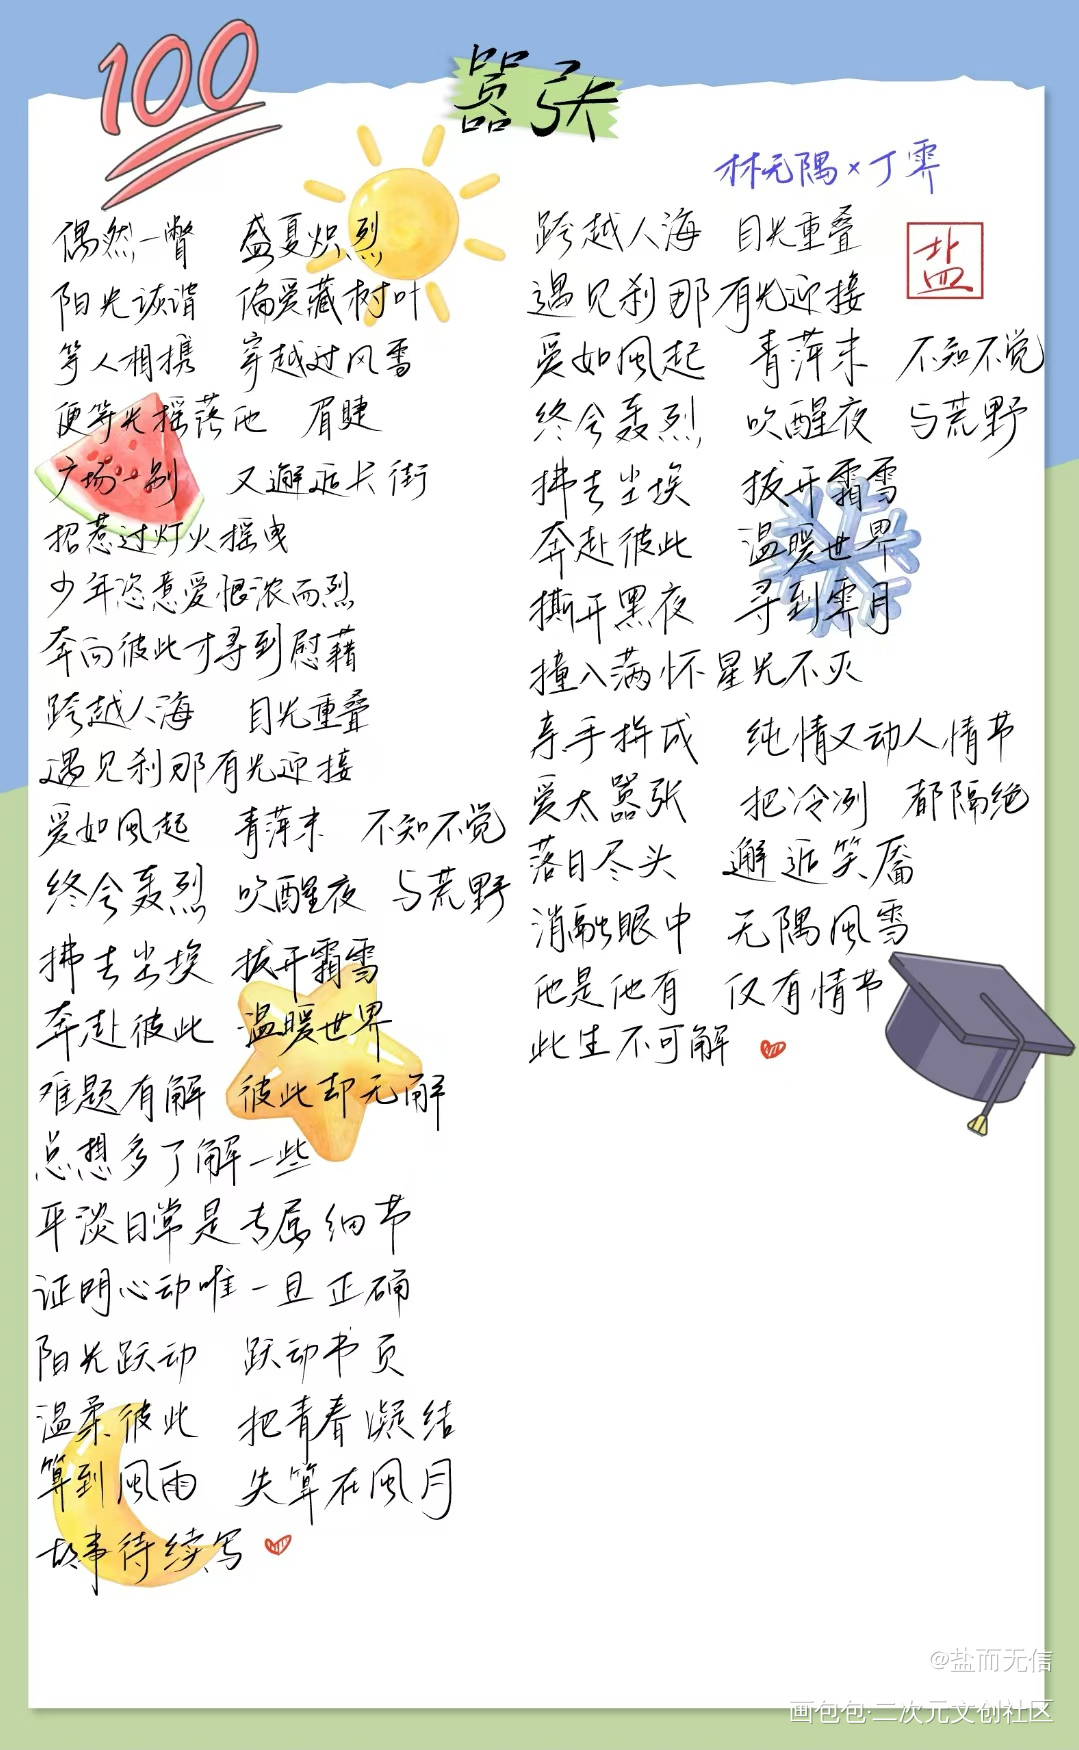 100
嚣张
林无隅×丁霁
盐
偶然一瞥 盛夏炽烈
阳光诙谐 偏爱藏树叶
等人相携 穿越过风雪
便等光摇落他 眉睫
广场一别 又邂逅长街
招惹过灯火摇曳
少年恣意爱恨浓而烈
奔向彼此才寻到慰藉
跨越人海 目光重叠
遇见刹那有光迎接
爱如风起 青萍末 不知不觉
终会轰烈 吹醒夜 与荒野
拂去尘埃 拔开霜雪
奔赴彼此 温暖世界
难题有解 彼此却无解
总想多了解一些
平淡日常是专属细节
证明心动唯一且正确
阳光跃动 跃动书页
温柔彼此 把青春凝结
算到风雨 失算在风月
故事待续写
跨越人海 目光重叠
遇见刹那有光迎接
爱如风起 青萍末 不知不觉
终会轰烈 吹醒夜 与荒野
拂去尘埃 拔开霜雪
奔赴彼此 温暖世界
撕开黑夜 寻到霁月
撞入满怀星光不灭
亲手拼成 纯情又动人情节
爱太嚣张 把冷冽 都隔绝
落日尽头 邂逅笑靥
消融眼中 无隅风雪
他是他有 仅有情书
此生不可解
@盐而无信
画包包·二次元文创社区